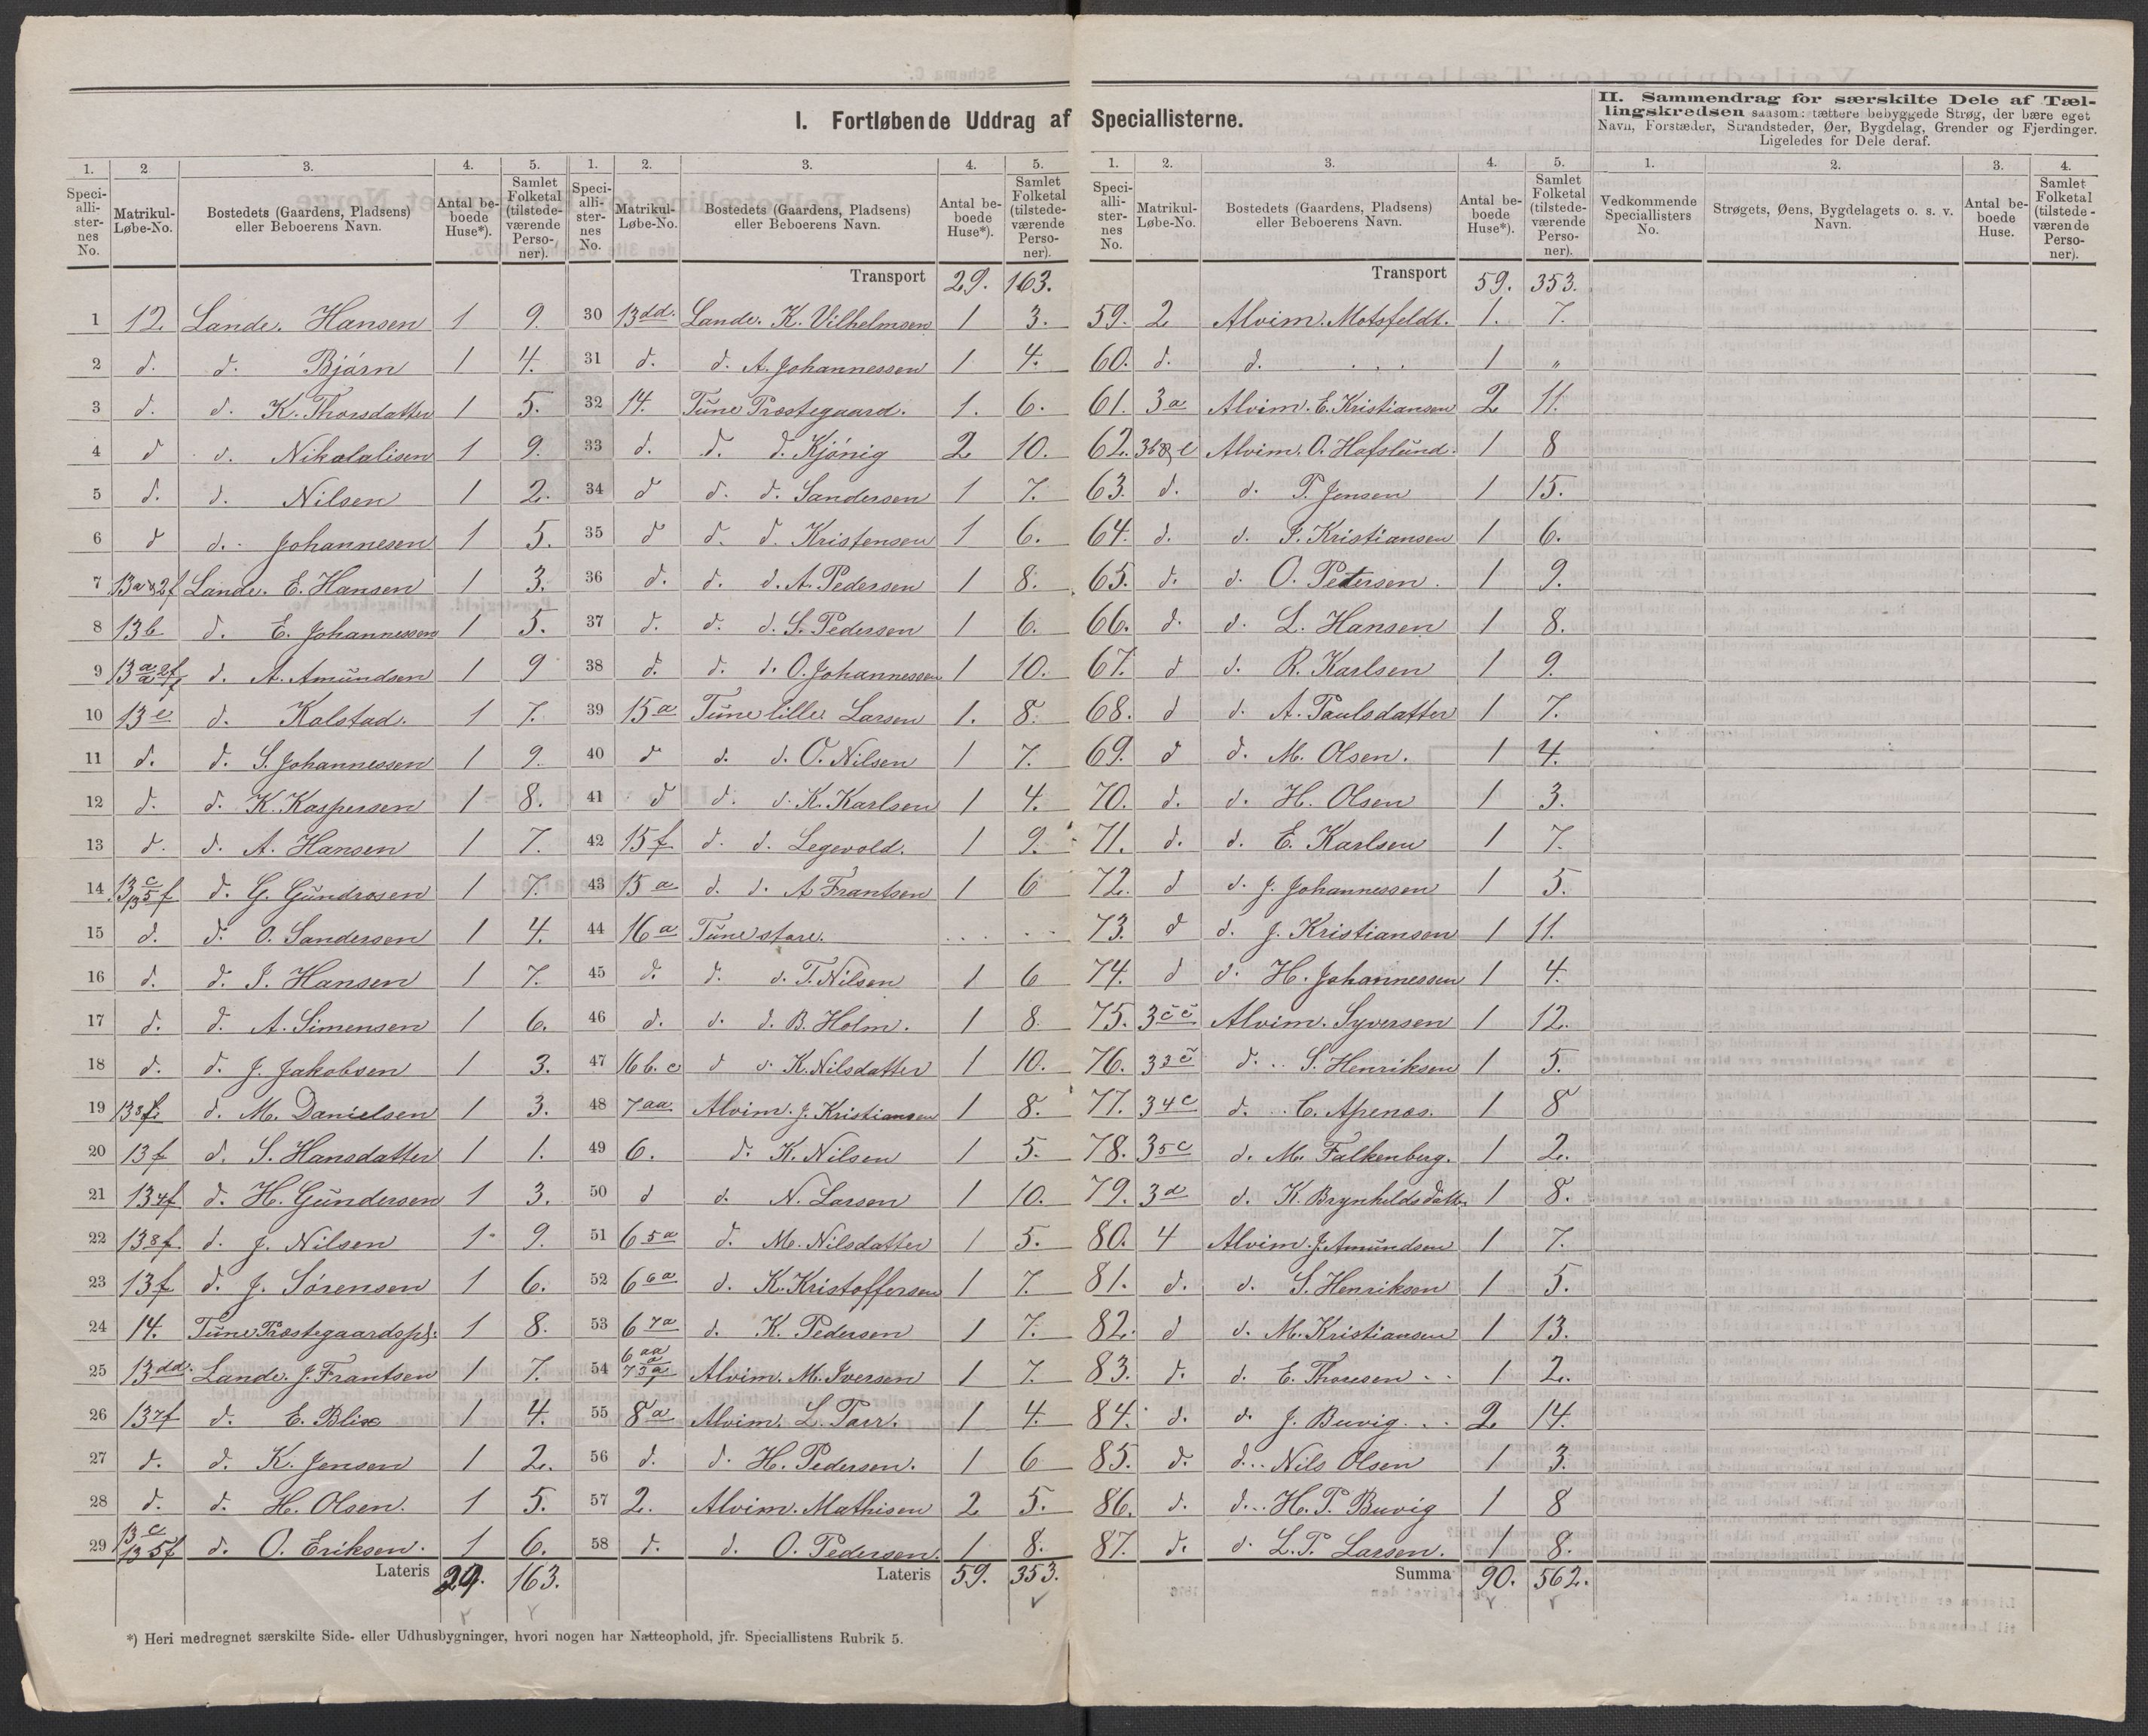 I. Fortløbende Uddrag af Speciallisterne.
II. Sammendrag for særskilte Dele af Tællingskredsen saasom: tættere bebyggede Strøg, der bære eget Navn, Forstæder, Strandsteder, Øer, Bygdelag, Grender og Fjerdinger. Ligeledes for Dele deraf.
1. 2 3. 4. 5.
Speciallisternes No. Matrikul-Løbe-No. Bostedets (Gaardens, Pladsens) eller Beboerens Navn. Antal beboede Huse*). Samlet Folketal (tilstedeværende Personer).
1 12. Lande. Hansen 1 9.
2 d. d. Bjørn 1 4.
3 d. d. K. Thorsdatter 1 5.
4 d d. Nikolalisen 1 9.
5 d. d. Nilsen 1 2.
6 d d. Johannesen 1 5.
7 13a&2f Lande. E. Hansen 1 3.
8 13b d. E. Johannessen 1 5.
9 d. A. Amundsen 1 9
10 13e d. Kolstad. 1 7.
11 d. d. S. Johannessen 1 9.
12 d. d. K. Kaspersen 1 8.
13 d. d. A. Hansen 1 7.
14 d. G. Gundrosen 1 7.
15 d. d. O. Sandersen 1 4.
16 d. d. J. Hansen 1 7.
17 d. d. A. Simensen 1 6.
18 d. d. J. Jakobsen 1 3.
19 13 8f. d. M. Danielsen 1 3.
20 13f d. S. Hansdatter 1 1.
21 13 4f d. H. Gundersen 1 3.
22 13 8f d. J. Nilsen 1 9.
23 13f d. J. Sørensen 1 6.
24 14. Tune Præstegaardspl. 1 8.
25 13dd. Lande. J. Frantsen 1 7.
26 13 7f d. E. Blix 1 4.
27 d. d. K. Jensen 1 2.
28 d. d. H. Olsen. 1 5.
29 13c 13 5f d. O. Eriksen. 1 6.
Lateris 29. 163.
1. 2. 3. 4. 5.
Speciallisternes No. Matrikul-Løbe-No. Bostedets (Gaardens, Pladsens) eller Beboerens Navn. Antal beboede Huse*). Samlet Folketal (tilstedeværende Personer).
Transport 29. 163.
30 13dd. Lande. K. Vilhelmsen 1 3.
31 d. d. A. Johannessen 1 4.
32 14. Tune Præstegaard. 1. 6.
33 d. d. d. Kjønig 2 10.
34 d d. d. Sandersen 1 7.
35 d d. d. Kristensen 1 6.
36 d. d. d. A. Pedersen 1 8.
37 d. d. d. S. Pedersen 1 6.
38 d. d. d. O. Johannessen 1 10.
39 15a Tune lille. Larsen 1. 8.
40 d d. d. O. Nilsen 1 7.
41 d d. d. K. Karlsen 1 4.
42 15f d. d. Legevold. 1 9.
43 15a d. d. A Frantsen 1 6
44 16a Tune store. . . . . .
45 d. d. d. T. Nilsen 1 6
46 d. d. d. B. Holm. 1 8.
47 16 b. c d d. K. Nilsdatter 1 10.
48 7aa Alvim. J. Kristiansen 1 8.
49 6. d. K. Nilsen 1 5.
50 d d. N. Larsen 1 10.
51 6 5a d. M. Nilsdatter 1 5.
52 6 6a d. K. Kristoffersen 1 7.
53 6 7a d. K. Pedersen 1 7.
54 Alvim. M. Iversen 1 7.
55 8a Alvim. L. Parr. 1 4.
56 d. d. H. Pedersen. 1 6
57 2. Alvim. Mathisen 2 5.
58 d. d. O. Pedersen. 1 8.
Lateris 59. 353.
1. 2. 3. 4. 5.
Speciallisternes No. Matrikul-Løbe-No. Bostedets (Gaardens, Pladsens) eller Beboerens Navn. Antal beboede Huse*). Samlet Folketal (tilstedeværende Personer).
Transport 59. 353.
59. 2 Alvim. Motsfeldt. 1. 7.
60. d. d. . . . 1 "
61. 3a Alvim. E. Kristiansen 2 11.
62. 3b&e Alvim. O. Hafslund. 1 8
63. d. d. P. Jensen 1 15.
64. d. d. P. Kristiansen 1 6.
65. d. d. O. Petersen. 1 9.
66. d. d. L. Hansen 1 8.
67. d d. R. Karlsen 1 9.
68. d d. A. Paulsdatter 1 7.
69. d d. M. Olsen. 1 4.
70. d. d. H. Olsen 1 3.
71. d. d. E. Karlsen 1 7.
72. d d. J. Johannessen 1 5.
73. d d. J. Kristiansen 1 11.
74. d d. H. Johannessen 1 4.
75. Alvim. Syversen 1 12.
76. d. .. S. Henriksen 1 5.
77. 3 4c d. .. C. Apenæs. 1 8
78. 3 5c d. M. Falkenberg. 1 2.
79. 3d d. K. Brynhildsdatter 1 8.
80. 4 Alvim. J. Amundsen 1 7.
81. d. d. S. Henriksen 1 5.
82. d d. M. Kristiansen 1 13.
83. d. d. E. Thoresen .. 1 2.
84. d. d. J. Buvig. .. 2 14.
85. d. d. .. Nils Olsen 1 3.
86. d. d. .. H. P. Buvig 1 8
87. d. d. L. P. Larsen. 1 8.
Summa 90. 562.
1. 2. 3. 4.
Vedkommende Speciallisters No. Strøgets, Øens, Bygdelagets o. s. v. Navn. Antal beboede Huse. Samlet Folketal (tilstedeværende Personer).
*) Heri medregnet særskilte Side- eller Udhusbygninger, hvori nogen har Natteophold, jfr. Speciallistens Rubrik 5.